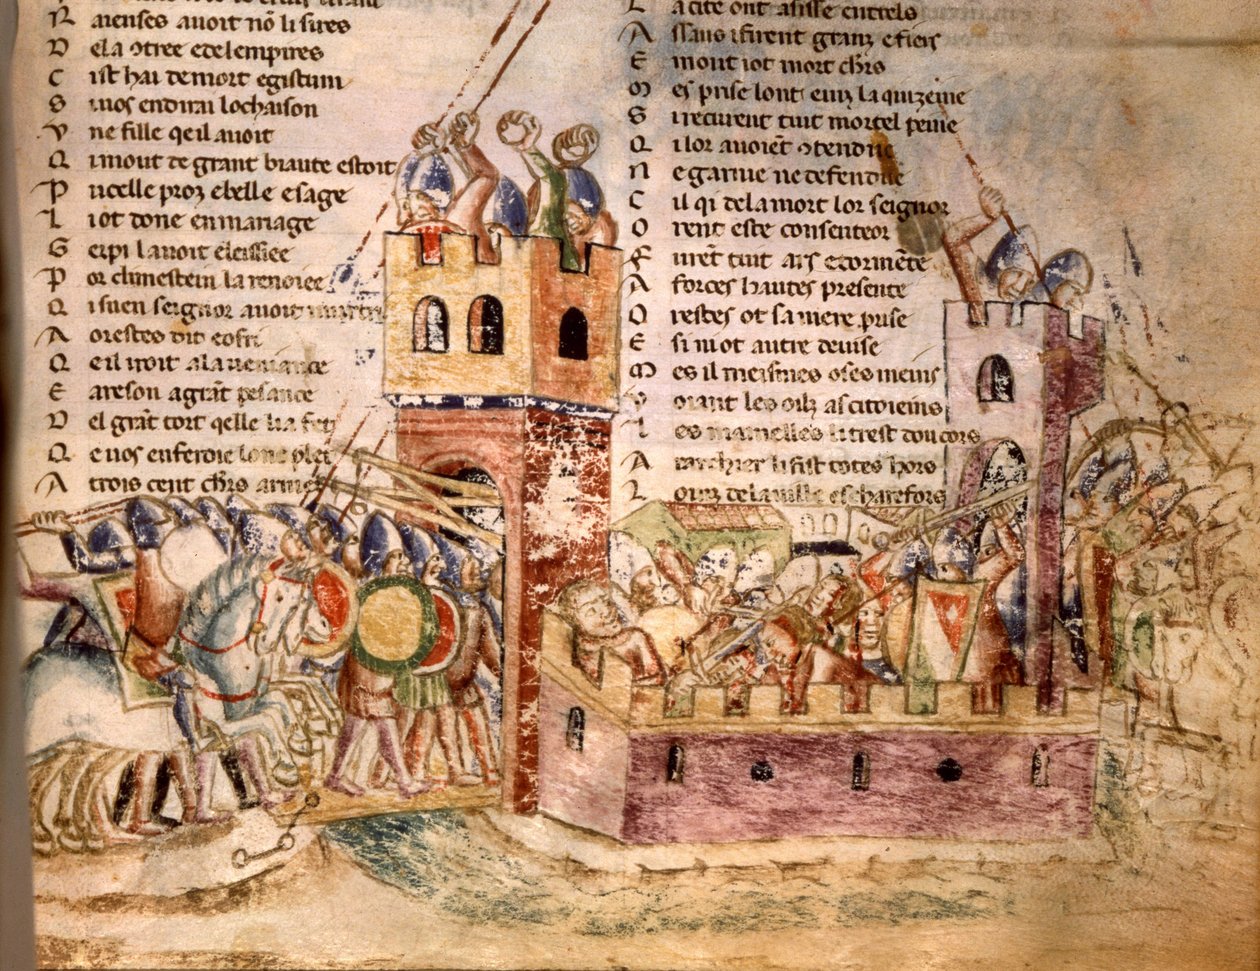 R aienses auoit nō li sires
D el a ↄtree e del empires
C ist hai de mort egistum
S i uos en dirai lochaison
V ne fille qe il auoit
Q i mout de grant biaute estoit
P ucelle proz e belle e sage
L i ot done en mariage
G erpi l auoit e leissiee
P or climestein la renoiee
Q i suen seignor auoit
A orestes dit e ofri
Q e il iroit a la ueniance
E areson a grāt pesance
D el grāt tort qelle li a fet
Q e uos en feroie lonc plet
A trois cent chrs armes
L a cite ont asisse entrels
A ssaus i firent granz e fiers
E mout i ot mort chrs
M es prise lont einz la quizeine
S i reciurent tuit mortel peine
Q i lor auoiēt ↄtendue
N e garnie ne defendue
C il qi de la mort lor seignor
O rent este consenteor
F urēt tuit ars e tormēte
A forces hautes presente
O restes ot sa mere prise
E si ni ot autre deuise
M es il meismes o ses meins
les oilz as citoieins
L es mamelles li trest dou cors
A rachier li fist totes hors
L ors de la uille